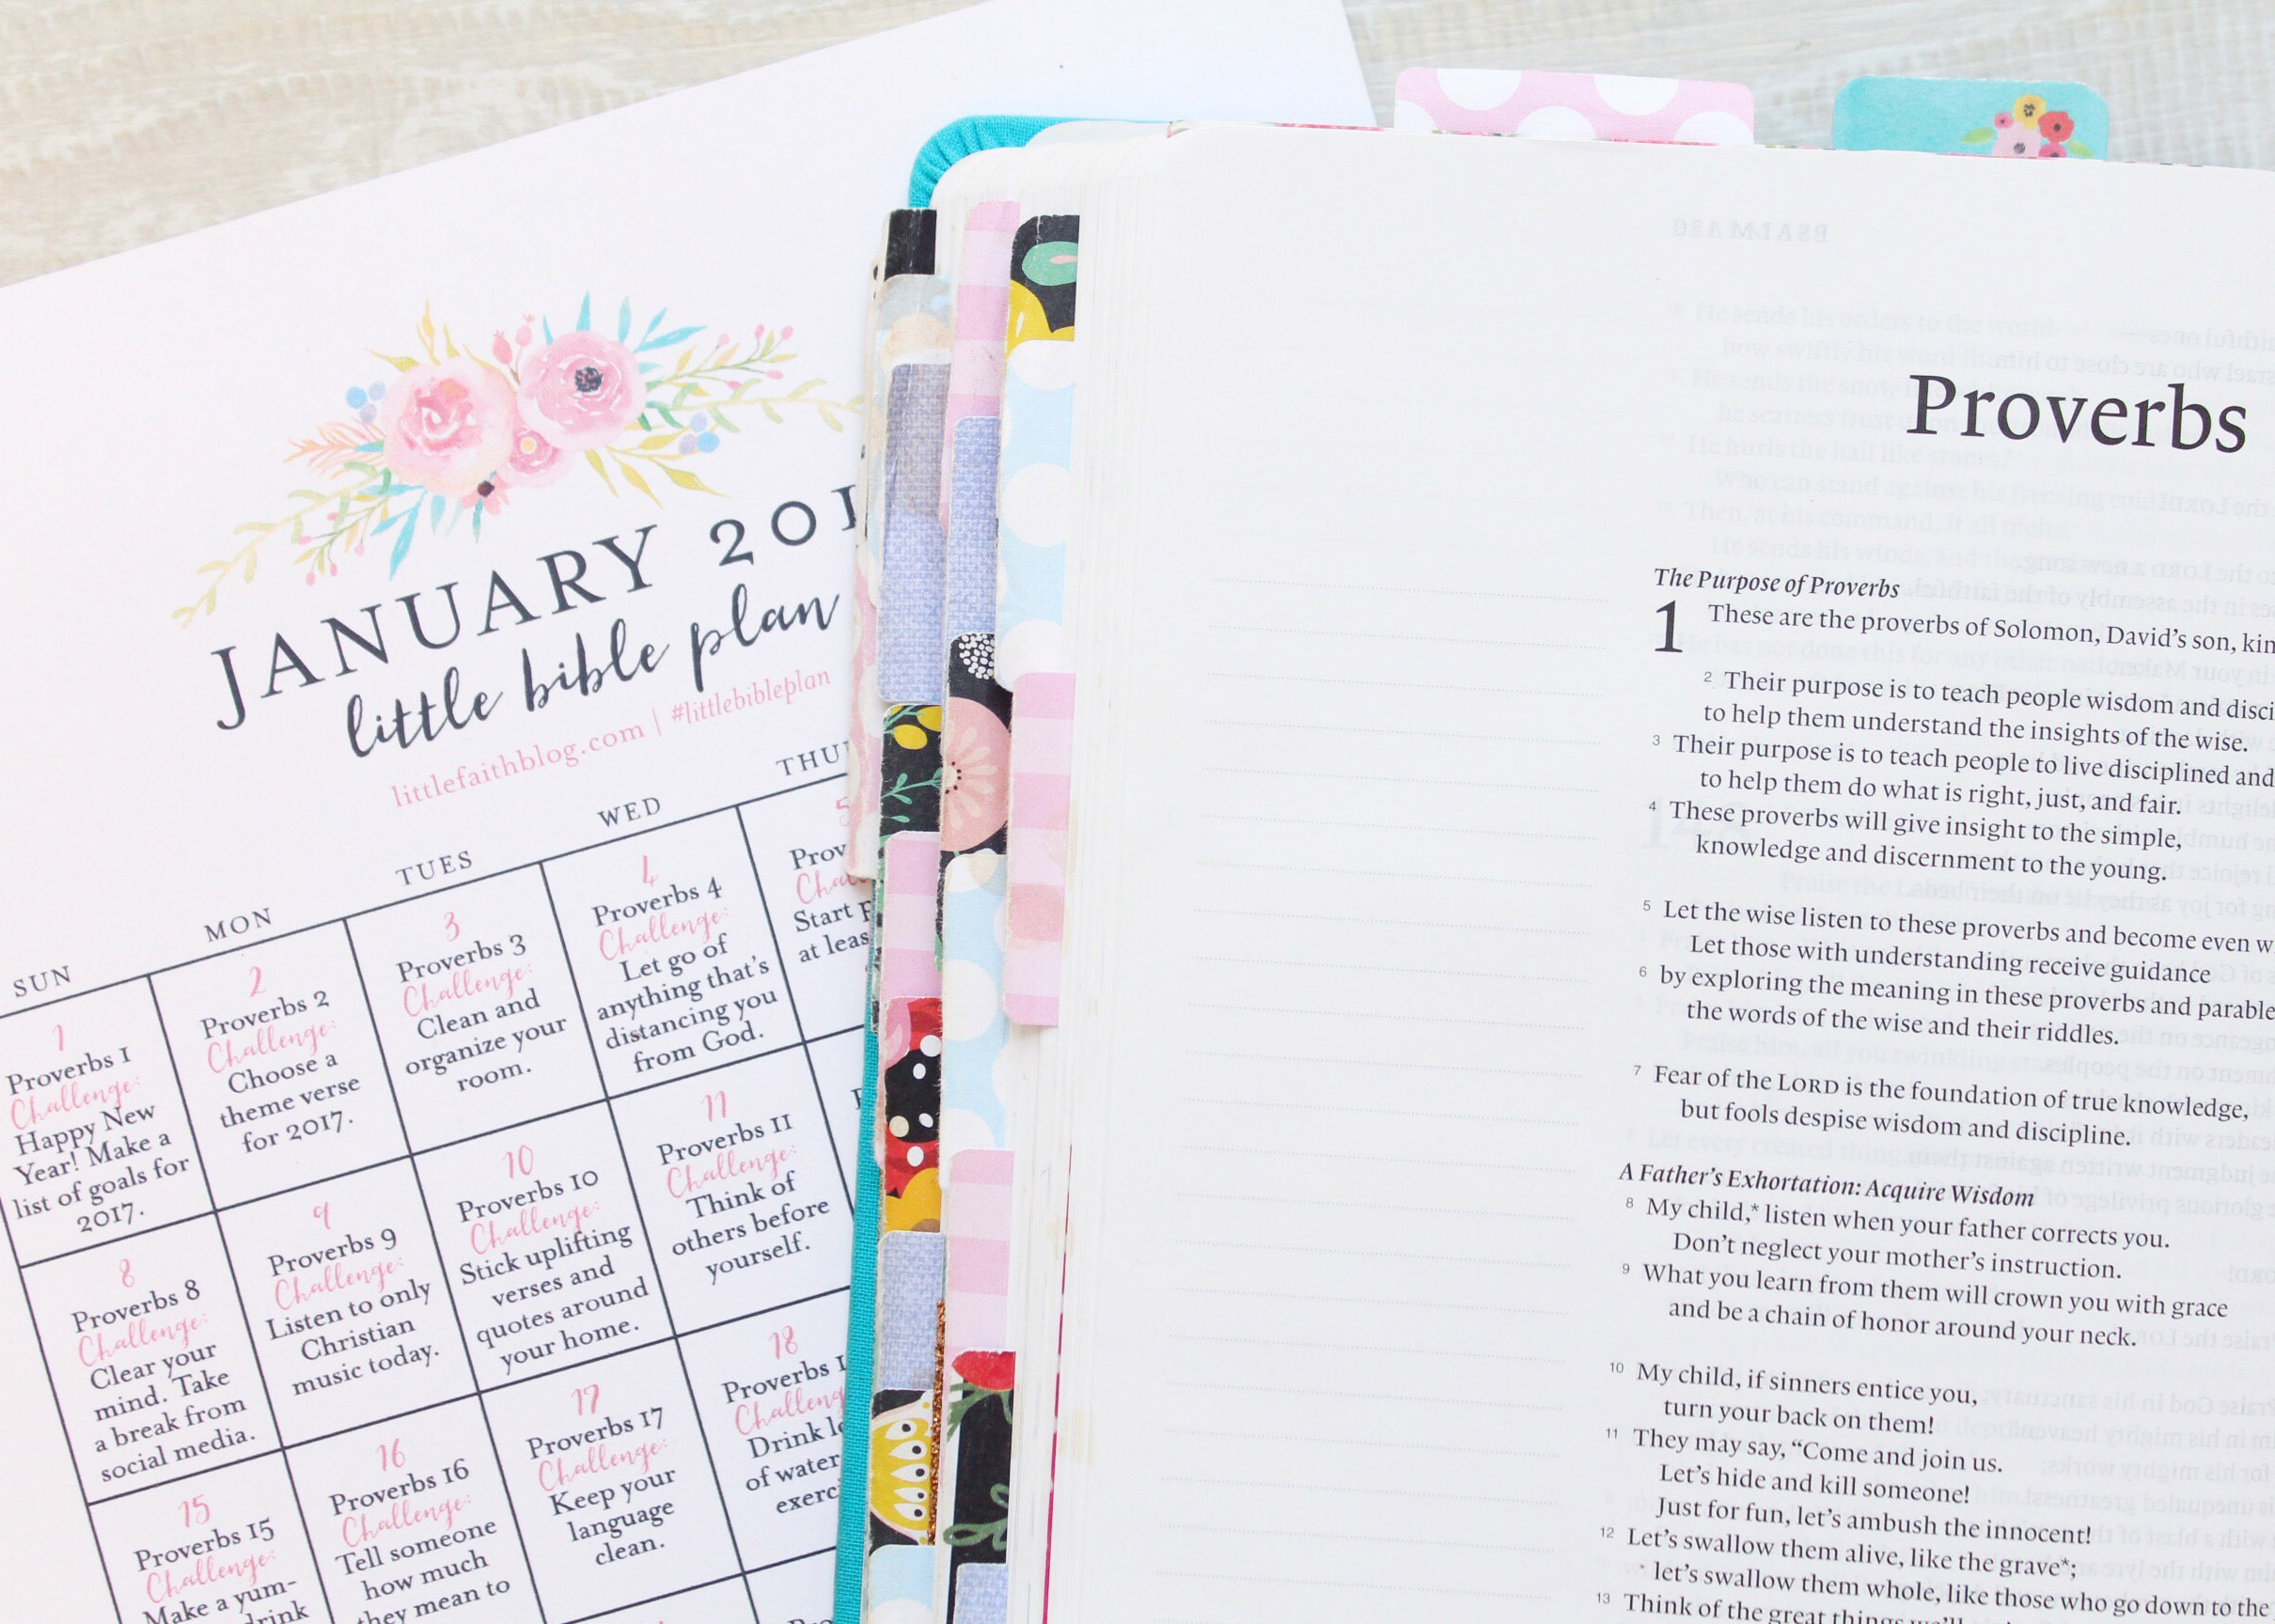 JANUARY 201
little bible plan
littlefaithblog.com | #littlebibleplan
SUN
MON
TUES
WED
1
Proverbs 1
Challenge:
Happy New
Year! Make a
list of goals for
2017.
2
Proverbs 2
Challenge:
Choose a
theme verse
for 2017.
3
Proverbs 3
Challenge:
Clean and
organize your
room.
4
Proverbs 4
Challenge:
Let go of
anything that's
distancing you
from God.
5
Start
8
Proverbs 8
Challenge:
Clear your
mind. Take
a break from
social media.
9
Proverbs 9
Challenge:
Listen to only
Christian
music today.
10
Proverbs 10
Challenge:
Stick uplifting
verses and
quotes around
your home.
11
Proverbs 11
Challenge:
Think of
others before
yourself.
15
Proverbs 15
Challenge:
Make a yum-
drink
16
Proverbs 16
Challenge:
Tell someone
how much
they mean to
17
Proverbs 17
Challenge:
Keep your
language
clean.
18
Proverbs
Drink
of water
Proverbs
The Purpose of Proverbs
1 These are the proverbs of Solomon, David's son,
2 Their purpose is to teach people wisdom and
to help them understand the insights of the wise.
3 Their purpose is to teach people to live disciplined and
to help them do what is right, just, and fair.
4 These proverbs will give insight to the simple,
knowledge and discernment to the young.
5 Let the wise listen to these proverbs and become even
Let those with understanding receive guidance
6 by exploring the meaning in these proverbs and
the words of the wise and their riddles.
7 Fear of the LORD is the foundation of true knowledge,
but fools despise wisdom and discipline.
A Father's Exhortation: Acquire Wisdom
8 My child,* listen when your father corrects you.
Don't neglect your mother's instruction.
9 What you learn from them will crown you with grace
and be a chain of honor around your neck.
10 My child, if sinners entice you,
turn your back on them!
11 They may say, "Come and join us.
Let's hide and kill someone!
Just for fun, let's ambush the innocent!
12 Let's swallow them alive, like the grave*;
let's swallow them whole, like those who go down to the
13 Think of the great things